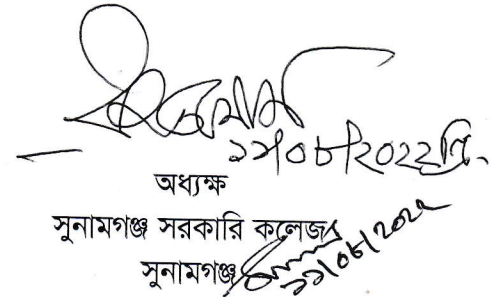 ১১/০৮/২০২২খ্রি.
অধ্যক্ষ
সুনামগঞ্জ সরকারি কলেজ
সুনামগঞ্জ
১১/০৮/২০২২